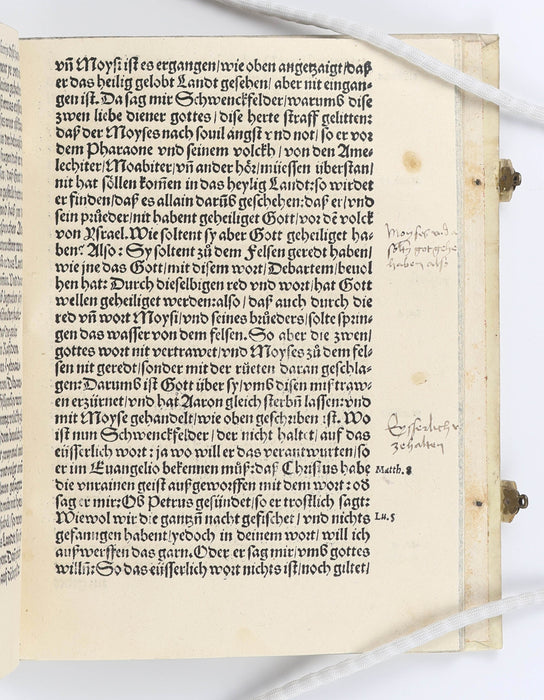 vn̄ Moysi ist es ergangen/wie oben angetzaigt/daß
er das heilig gelobt Landt gesehen/aber nit eingan-
gen ist. Da sag mir Schwenckfelder/warumb dise
zwen liebe diener gottes/dise herte straff gelitten:
daß der Moyses nach souil angst vnd not/so er vor
dem Pharaone vnd seinem volckh/von den Ame-
lechiter/Moabiter/vn̄ ander hör/müessen überstan/
nit hat söllen kom̄en in das heylig Landt: so wirdet
er finden/daß es allain darūb geschehen: daß er/vnd
sein prüeder/nit habent geheiliget Gott/vor dē volck
von Israel. Wie soltent sy aber Gott geheiliget ha-
ben? Also: Sy soltent zů dem Felsen geredt haben/
wie jne das Gott/mit disem wort/Debartem/beuol
hen hat: Durch dieselbigen red vnd wort/hat Gott
wellen geheiliget werden: also/daß auch durch die
red vn̄ wort Moysi/vnd seines brüeders/solte sprin-
gen das wasser von dem felsen. So aber die zwen/
gottes wort nit vertrawet/vnd Moyses zů dem fel-
sen nit geredt/sonder mit der rüeten daran geschla-
gen: Darumb ist Gott über sy/vmb disen mißtraw-
en erzürnet/vnd hat Aaron gleich sterbn̄ lassen: vnd
mit Moyse gehandelt/wie oben geschriben ist. Wo
ist nun Schwenckfelder/der nicht haltet/auf das
eüsserlich wort: ja wo will er das verantwurten/so
er im Euangelio bekennen můß: daß Christus habe
die vnrainen geist außgeworffen mit dem wort: od
sag er mir: Ob Petrus gesündet/so er trostlich sagt:
Wiewol wir die gantzn̄ nacht gefischet/vnd nichts
gefangen habent/yedoch in deinem wort/will ich
außwerffen das garn. Oder er sag mir/vmb gottes
willn̄: So das eüsserlich wort nichts ist/noch giltet/
Moyses
haben also
Eysserlich
zehalten
Matth. 8
Lu. 5